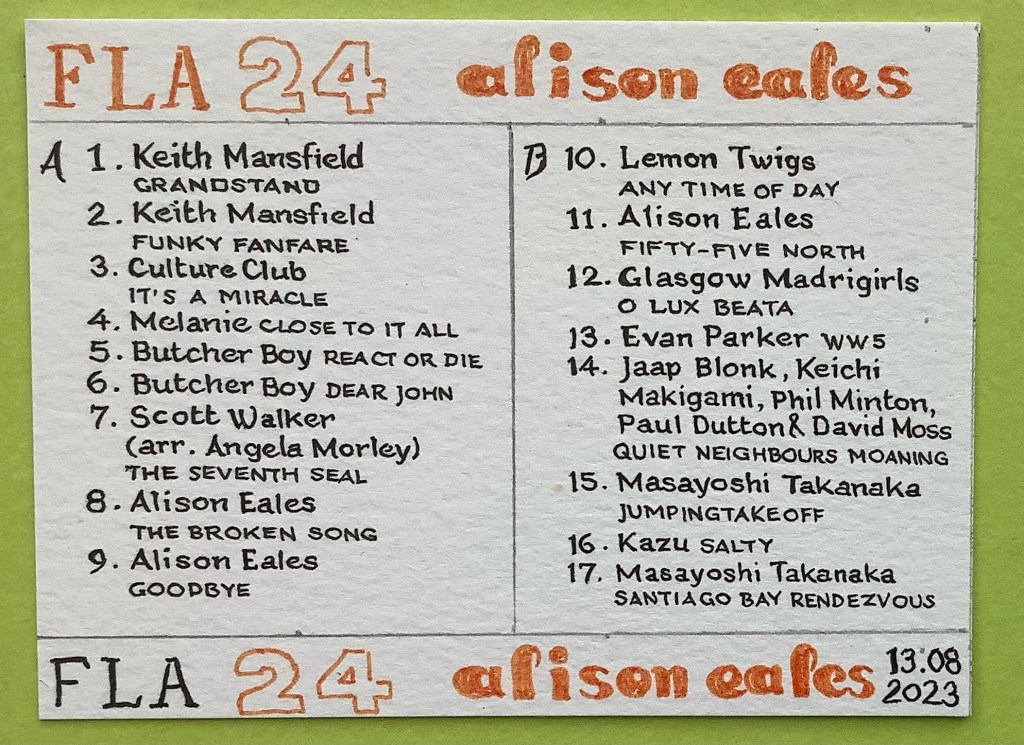 FLA 24 alison eales
A 1. Keith Mansfield
GRANDSTAND
2. Keith Mansfield
FUNKY FANFARE
3. Culture Club
IT'S A MIRACLE
4. Melanie CLOSE TO IT ALL
5. Butcher Boy REACT OR DIE
6. Butcher Boy DEAR JOHN
7. Scott Walker
(arr. Angela Morley)
THE SEVENTH SEAL
8. Alison Eales
THE BROKEN SONG
9. Alison Eales
GOODBYE
B 10. Lemon Twigs
ANY TIME OF DAY
11. Alison Eales
FIFTY-FIVE NORTH
12. Glasgow Madrigirls
O LUX BEATA
13. Evan Parker WW5
14. Jaap Blonk, Keichi
Makigami, Phil Minton,
Paul Dutton & David Moss
QUIET NEIGHBOURS MOANING
15. Masayoshi Takanaka
JUMPINGTAKEOFF
16. Kazu SALTY
17. Masayoshi Takanaka
SANTIAGO BAY RENDEZVOUS
FLA 24 alison eales 13.08
2023